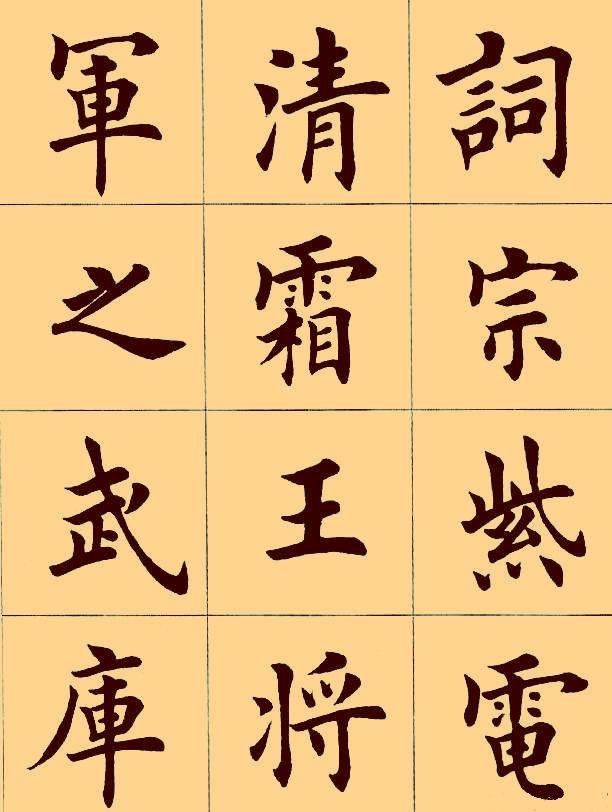 詞宗紫電
清霜王将
軍之武庫